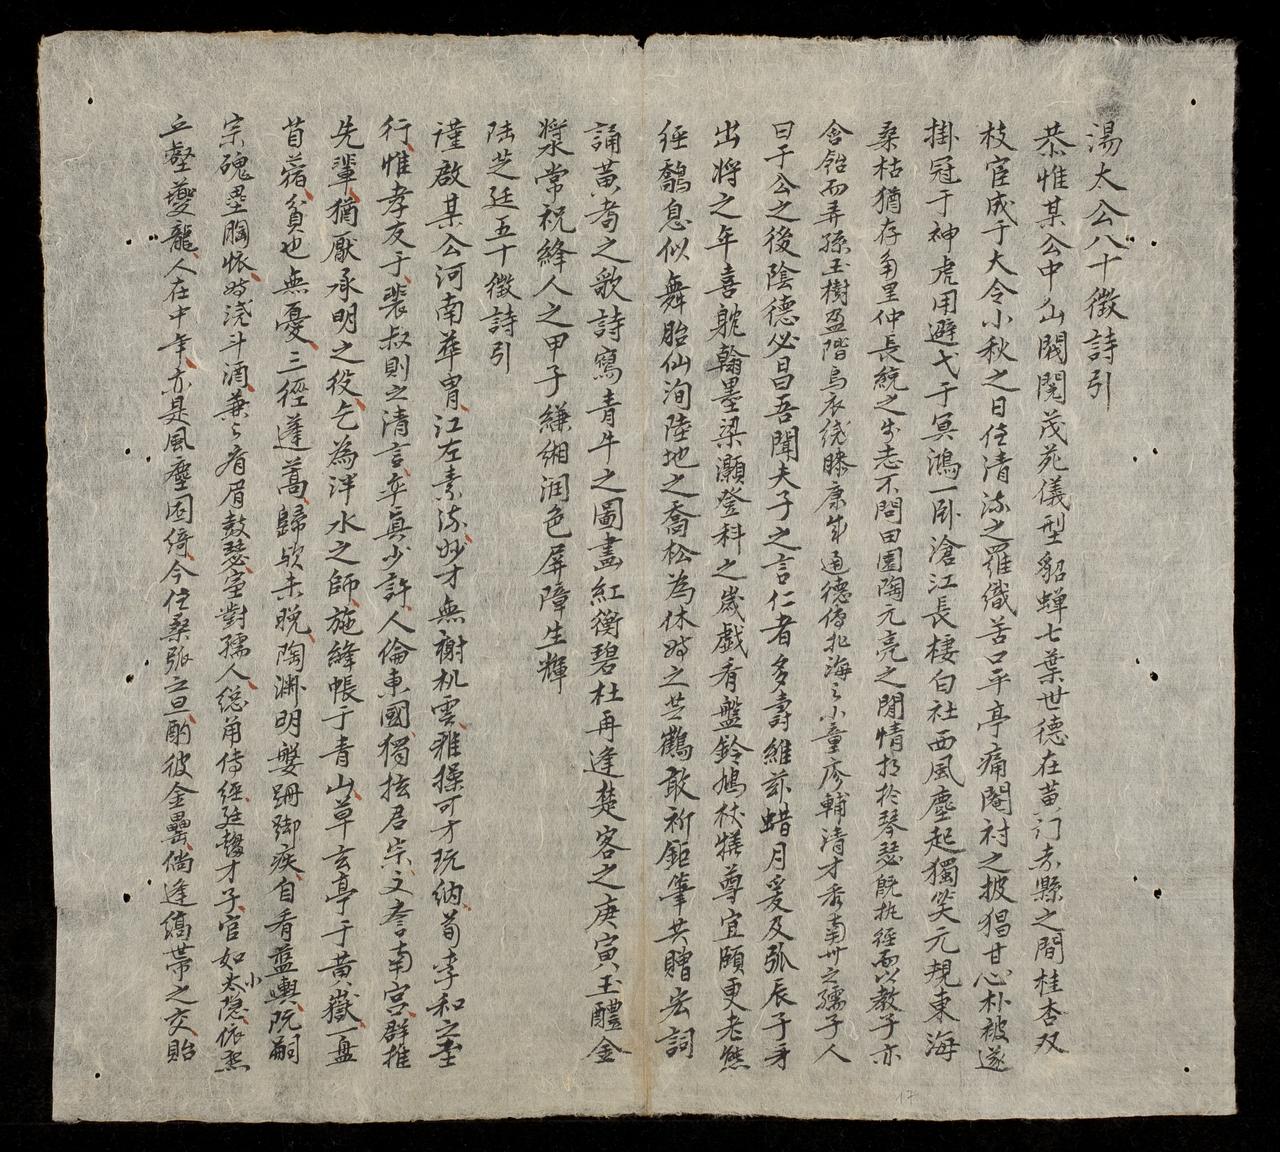 湯太公八十徵詩引
恭惟某公中山閥閱茂苑儀型貂蟬七葉世德在黃門赤縣之間桂杏双
枝宦成于大令小秋之日任清流之羅織苦口平亭痛閹衬之披猖甘心朴被遂
掛冠于神虎用避弋于冥鴻一卧滄江長棲白社西風塵起獨笑元規東海
桑枯猶存甪里仲長統之少志不問田園陶元亮之閒情相於琴瑟既執徑而以教子亦
含飴而弄孫玉樹盈階烏衣繞膝康成通德傳北海之小童彥輔清才秀南州之孺子人
曰于公之後陰德必昌吾聞夫子之言仁者多壽維茲蜡月爰及弧辰子牙
出將之年喜躭翰墨梁灝登科之歲戲看盤鈴鳩杖犧尊宜頤更老熊
經鷸息似舞胎仙洵陸地之喬松為休時之芝鶴敢祈鉅筆共贈宏詞
誦黃耇之歌詩寫青牛之圖畫紅蘅碧杜再逢楚客之庚寅玉醴金
漿常祝絳人之甲子縑緗潤色屏障生輝
陆芝廷五十徵詩引
謹啟某公河南華冑江左素流妙才無謝机雲雅操可才玩納荀李和之至
行惟孝友于裴叔則之清言卒真少許人倫東國獨拡君宗文奪南宮群推
先輩猶厭承明之役乞為泮水之師施絳帳于青山草玄亭于黃嶽一盤
苜蓿貧也無憂三徑蓬蒿歸欤未晚陶淵明媻跚御疾自看藍輿阮嗣
宗磈壘胸懷時澆斗酒兼之齊眉鼓瑟室對孺人總角侍經廷趨才子官如小隐依然
丘壑夔龍人在中年亦是風塵园綺今住桑弧之旦酌彼金罍倘逢縞帶之交貽
17